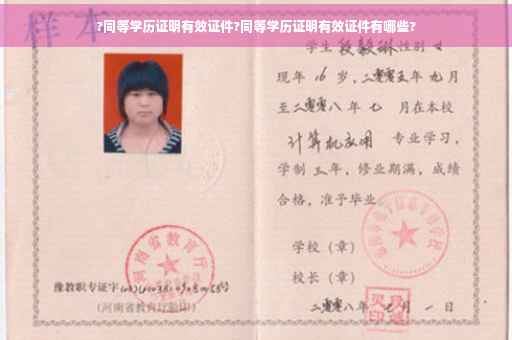 ?同等学历证明有效证件?同等学历证明有效证件有哪些?
样本
学生段毅琳性别女
现年16岁，二零零五年九月
至二零零八年七月在本校
计算机应用 专业学习，
学制三年，修业期满，成绩
合格，准予毕业
学校（章）
校长（章）
二零零八年七月一日
河南省教育厅
豫教职专证字
（河南省教育厅验印）